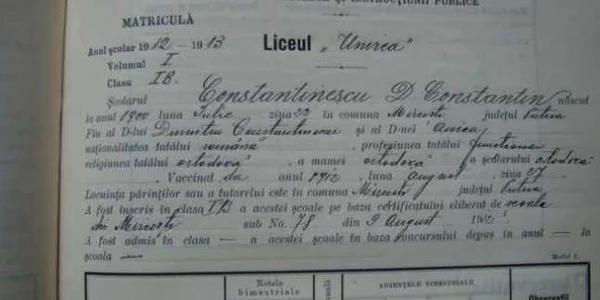 ȘI INSTRUCȚIUNII PUBLICE
MATRICULĂ
Anul școlar 1912 – 1913
Liceul „Unirea"
Volumul I
Clasa I B.
Școlarul Constantinescu D. Constantin născut
la anul 1900 luna Iulie ziua 22 în comuna Mircești județul Putna
Fiu al D-lui Dumitru Constantinescu și al D-nei Anica
naționalitatea tatălui română, profesiunea tatălui funcționar
religiunea tatălui ortodocă, a mamei ortodocă a școlarului ortodocă
Vaccinat da anul 1912, luna august ziua 27
Locuința părinților sau a tutorelui este în comuna Mircești județul Putna
A fost înscris în clasa I B a acestei școale pe baza certificatului eliberat de scoala
din Mircești sub No. 78 din 9 August 1912
A fost admis în clasa — a acestei școale în baza concursului depus în anul — la
școala —
Notele
bimestriale
ABSENȚELE BIMESTRIALE
Observații